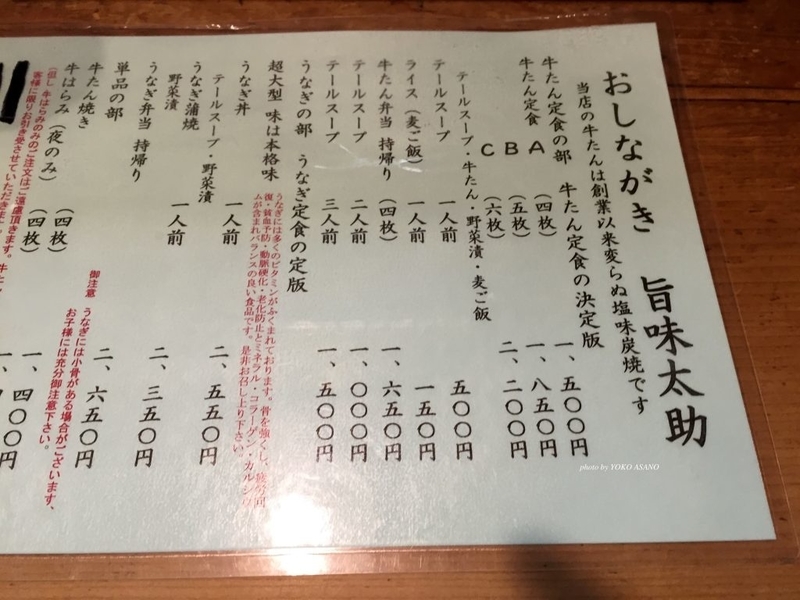 おしながき　旨味太助
当店の牛たんは創業以来変らぬ塩味炭焼です
牛たん定食の部　牛たん定食の決定版
牛たん定食　A（四枚）　一、五〇〇円
B（五枚）　一、八五〇円
C（六枚）　二、二〇〇円
テールスープ・牛たん・野菜漬・麦ご飯
テールスープ　一人前　五〇〇円
ライス（麦ご飯）　一人前　一五〇円
牛たん弁当 持帰り（四枚）　一、六五〇円
テールスープ　二人前　一、〇〇〇円
テールスープ　三人前　一、五〇〇円
うなぎの部　うなぎ定食の定版
超大型　味は本格味
うなぎには多くのビタミンがふくまれております。骨を強くし、疲労回
復・貧血予防・動脈硬化・老化防止とミネラル・コラーゲン・カルシウ
ムが含まれバランスの良い食品です。是非お召し上り下さい。
うなぎ丼　一人前　二、五五〇円
テールスープ・野菜漬
うなぎ蒲焼　一人前　二、三五〇円
野菜漬
うなぎ弁当 持帰り　二、六五〇円
御注意　うなぎには小骨がある場合がございます、
お子様には充分御注意下さい。
単品の部
牛たん焼き（四枚）　一、四〇〇円
牛はらみ（夜のみ）（四枚）
（但し 牛はらみのみのご注文はご遠慮頂きます。
客様に限りお引き受させていただきます）
photo by YOKO ASANO